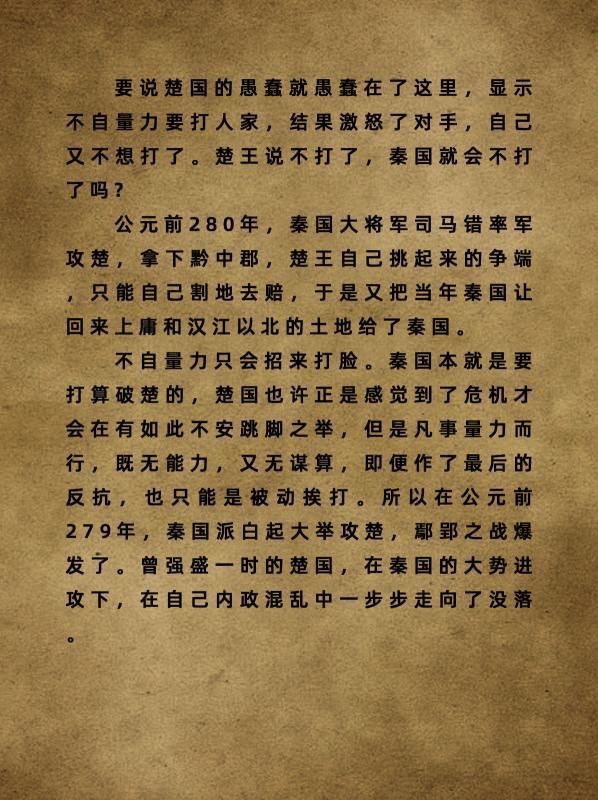 要说楚国的愚蠢就愚蠢在了这里，显示
不自量力要打人家，结果激怒了对手，自己
又不想打了。楚王说不打了，秦国就会不打
了吗?
公元前280年，秦国大将军司马错率军
攻楚，拿下黔中郡，楚王自己挑起来的争端
，只能自己割地去赔，于是又把当年秦国让
回来上庸和汉江以北的土地给了秦国。
不自量力只会招来打脸。秦国本就是要
打算破楚的，楚国也许正是感觉到了危机才
会在有如此不安跳脚之举，但是凡事量力而
行，既无能力，又无谋算，即便作了最后的
反抗，也只能是被动挨打。所以在公元前
279年，秦国派白起大举攻楚，鄢郢之战爆
发了。曾强盛一时的楚国，在秦国的大势进
攻下，在自己内政混乱中一步步走向了没落
。